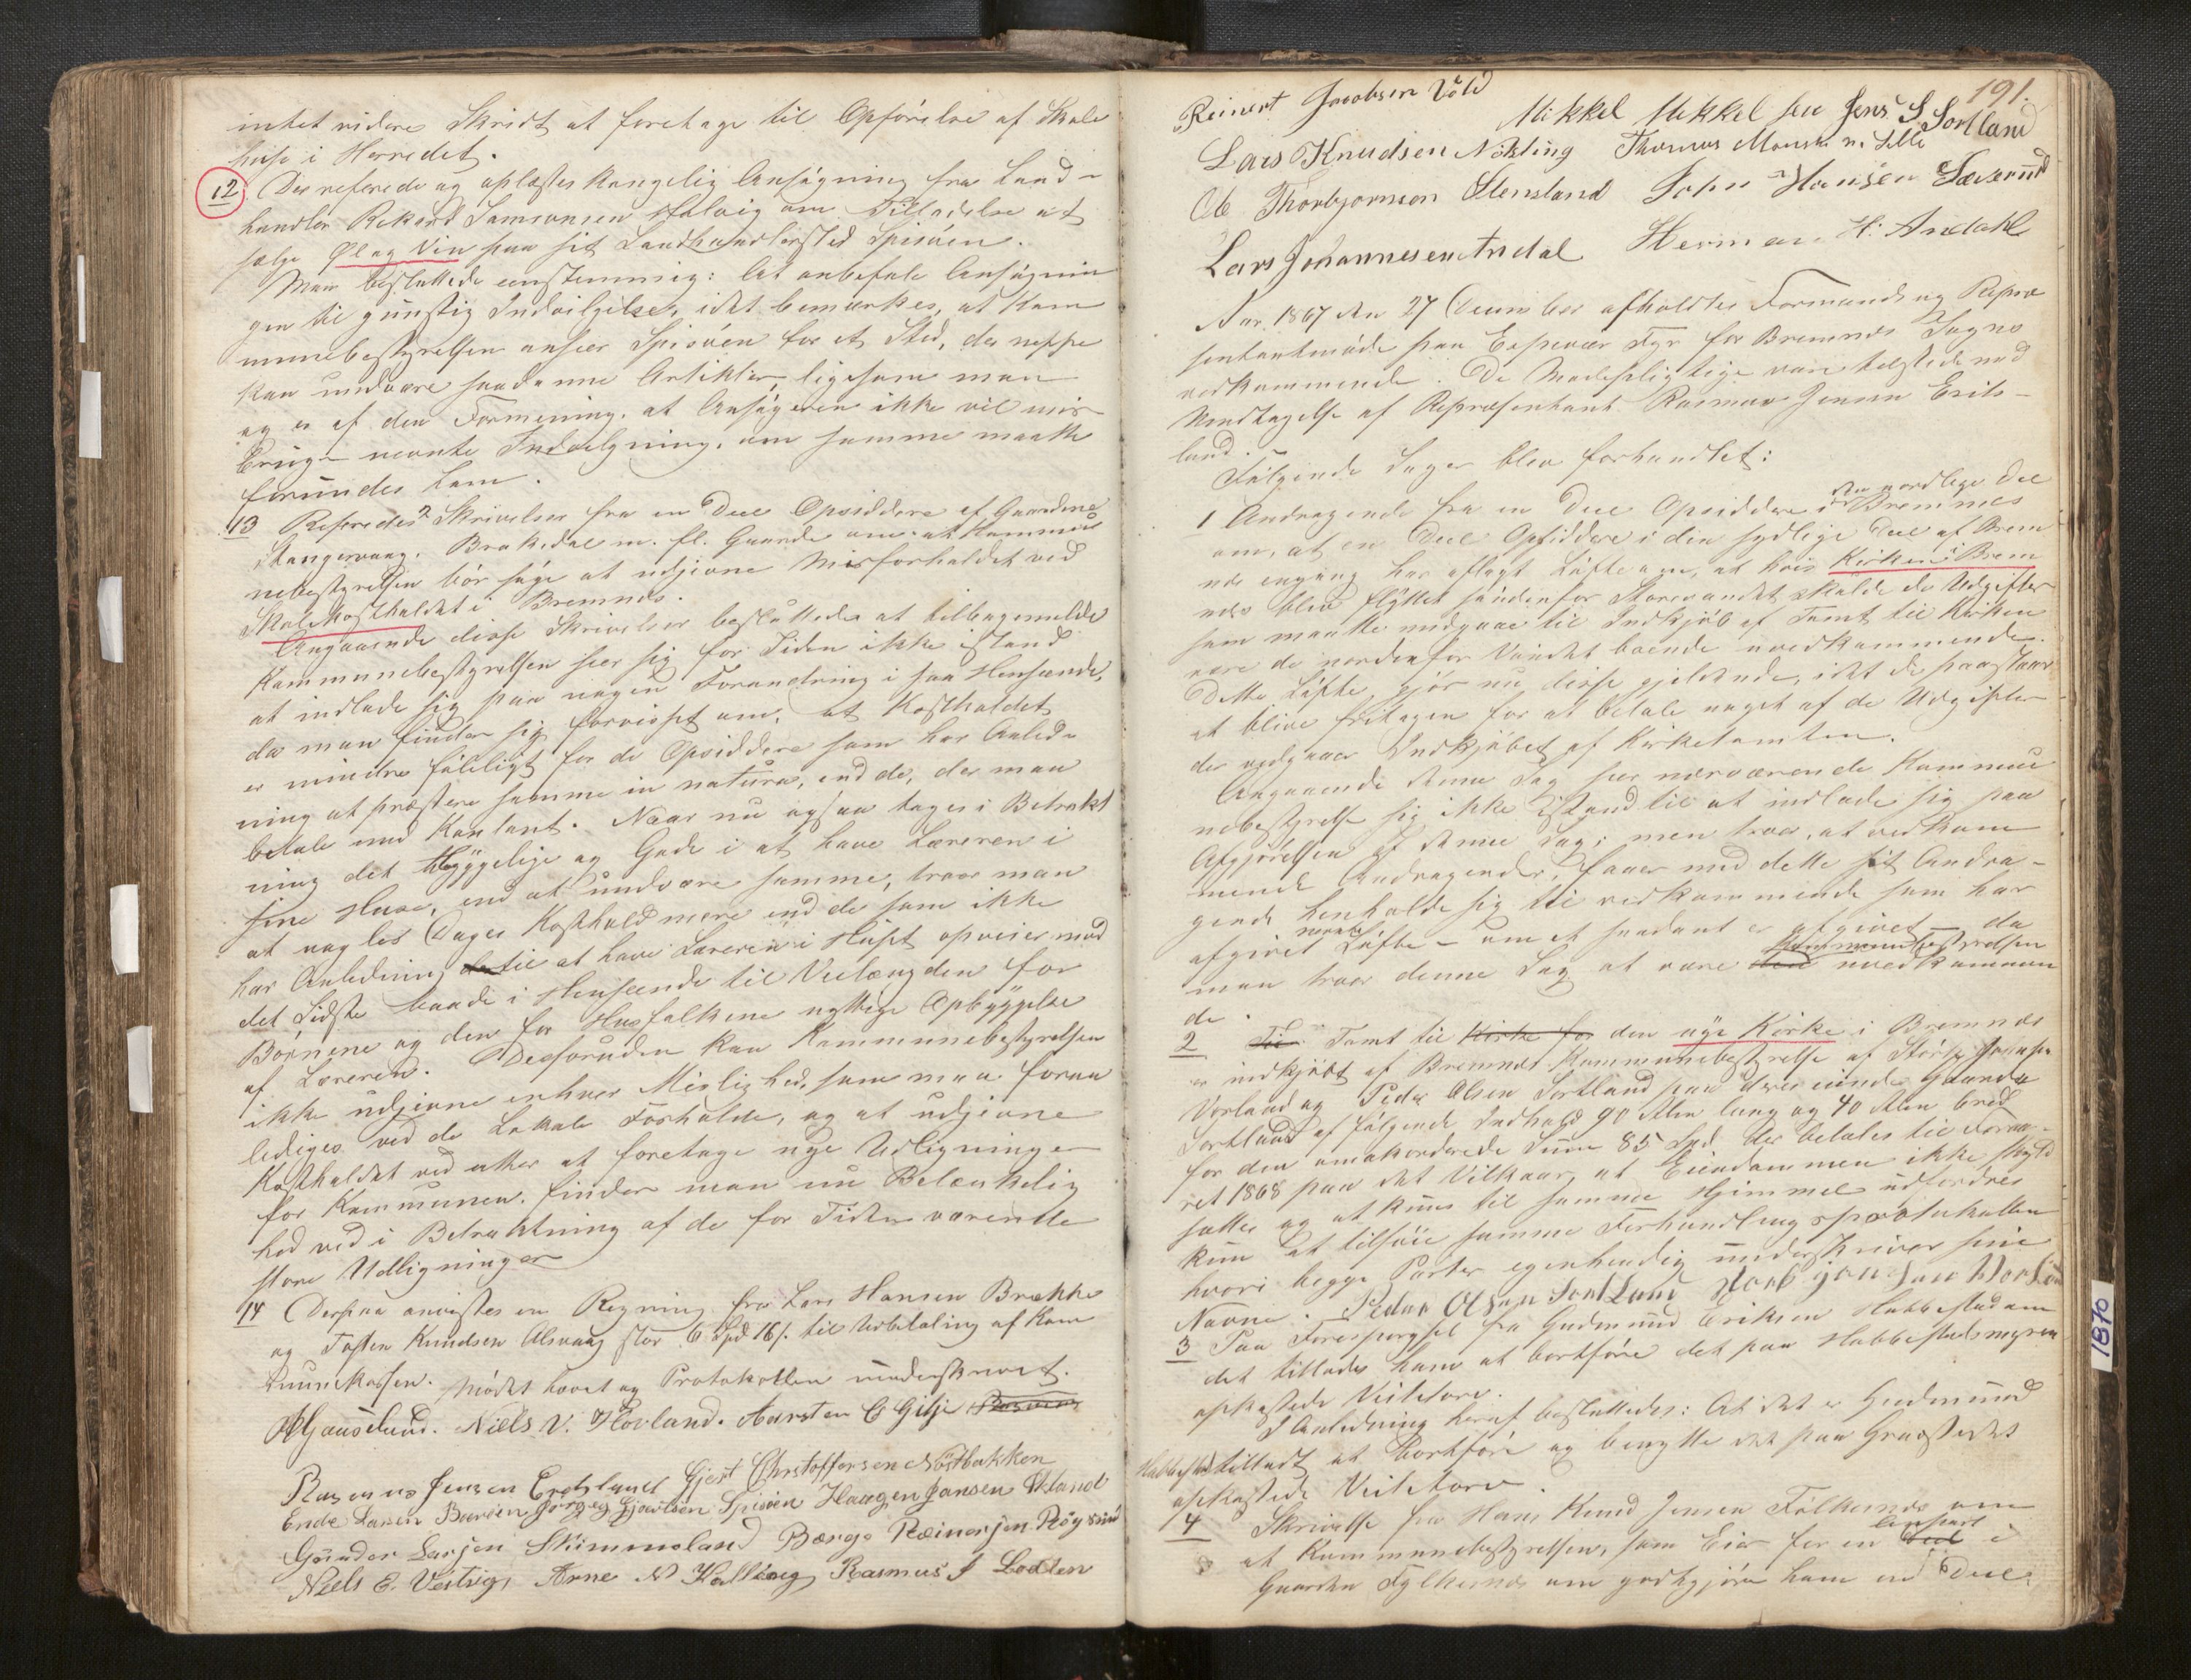 intet videre Skridt at foretage til Opførelse af Skole
huse i Herredet.
12 Der refererede og oplæstes kongelig Ansøgning fra Land-
handler Rikard Samsonsen Halvig om Tilladelse at
sælge Øl og Vin paa sit Landhandlersted Spisøen.
Man besluttede eenstemmig: At anbefale Ansøgnin
gen til gunstig Indvilgelse, idet bemærkes, at Kom
munebestyrelsen anseer Spisøen for et Sted, der neppe
kan undvære saadanne Artikler, ligesom man
og er af den Formening, at Ansøgeren ikke vil mis
bruge nevnte Indvilgning, om samme maatte
forundes ham.
13 Referedes 2 Skrivelser fra en Deel Opsiddere af Gaardene
Stangervaag, Brakedal m. fl. Gaarde om at Kommu
nebestyrelsen bør søge at udjevne Misforholdet ved
Skolekostholdet i Bremnes.
Angaaende disse Skrivelser besluttedes at tilbagemelde
Kommunebestyrelsen seer sig for Tiden ikke istand
at indlade sig paa nogen Forandring i saa Henseende,
da man finder sig forvisset om, at Kostholdet
er mindre føleligt for de Opsiddere som har Anled-
ning at præstere samme in natura, end de, der maa
betale med Kontant. Naar nu ogsaa tages i Betrakt
ning det Hyggelige og Gode i at have Læreren i
sine Huse, end at undvære samme, troer man
at nogles Dages Kosthold mere end de som ikke
har Anledning til at have Læreren i Huset opveier mod
det Sidste baade i Henseende til Veilængden for
Børnene og den for Husfolkene nyttige Opbyggelse
af Læreren. Desforuden kan Kommunebestyrelsen
ikke udjevne enhver Mislighed, som maa foran
lediges ved de Lokale Forholde, og at udjevne
Kostholdet ved atter at foretage nye Udligninger
for Kommunen, finder man nu Betænkelig
hed ved i Betraktning af de for Tiden værende
store Udligninger
14 Derpaa anvistes en Regning fra Lars Hansen Brække
og Tosten Knudsen Alsvaag stor 6 Spd 16 s. til Udbetaling af Kom
munekassen. Mødet hævet og Protokollen underskrevet.
Niels N. Hovland. Aarsten C Gilje
Rasmus Jensen Eridsland Gjert Christoffersen Nøstbakken
Ende Larsen Børøen Jørgen Gjertsen Spisøen Haagen Jansen Økland
Gunder Larsen Skimmeland Børge Reinersen Røysund
Niels E. Vestvig, Arne N Kallevag Rasmus J Lodden
191.
Reinert Jacobsen Vold Mikkel Mikkelsen Jens S Sortland
Lars Knudsen Nøkling Thomas Monsen Lille
Ole Thorbjørnson Stensland John Hansen Sæversud
Lars Johannesen Andal Herman H. Andahl
Aar 1867 den 27 December afholdtes Formands og Repræ
sentantmøde paa Espevær Fyr for Bremnes Sogns
vedkommende. De Mødepligtige vare tilstede med
Undtagelse af Repræsentant Rasmus Jensen Erids-
land.
Følgende Sager blev forhandlet:
1 Andragende fra en Deel Opsiddere i den nordlige Del Bremnes
om, at en Deel Opsiddere i den sydlige Deel af Brem
nes engang har aflagt Løfte om, at hvis Kirken i Brem
nes blev flyttet søndenfor Storevandet skulde de Udgifter
som maatte medgaae til Indkjøb af Tomt til Kirken
være de nordenfor Vandet boende uvedkommende.
Dette Løfte gjør nu disse gjeldende, idet de paastaar
at blive fritagen for at betale noget af de Udgifter
der vedgaaer Indkjøbet af Kirketomten.
Angaaende denne Sag seer nærværende Kommu
nebestyrelse sig ikke istand til at indlade sig paa
Afgjørelsen af denne Sag; men troer, at vedkom
mende Andragender, faaer med dette sit Andra-
gende henholde sig til vedkommende som har
afgivet nevnte Løfte - om et saadant er afgivet - da
man troer denne Sag at være Kommunebestyrelsen uvedkommen
de.
2 Tomt til Kirke for den nye Kirke i Bremnes
er indkjøbt af Bremnes Kommunebestyrelse af Størk Johnsen
Vorland og Peder Olsen Sortland paa deres eiende Gaarde
Sortland af følgende Indhold 90 Alen lang og 40 Alen bred
for den omakorderede Sum 85 Spd. der betales til Foraa-
ret 1868 paa det Vilkaar, at Eiendommen ikke skyld
sættes og at kuns til samme Hjemmel udfordres
kun at tilføie samme Forhandlingsprotokollen
hvori begge Parter egenhendig underskriver sine
Navne. Peder Olsen Sortland
3 Paa Forespørgsel fra Gudmund Eriksen Habbestad om
det tillades ham at bortføre det paa Habbestadmyren
opkastede Veitetorv.
I Anledning heraf besluttedes: At det er Gudmund
Habbestad tilladt at bortføre og benytte det paa Grusstedet
opkastede Veitetorv.
4 Skrivelse fra Hans Knud Jensen Følkesnes om
at Kommunebestyrelsen, som Eier for en i
Gaarden Fylkesnes om godtgjøre ham en Deel
1870